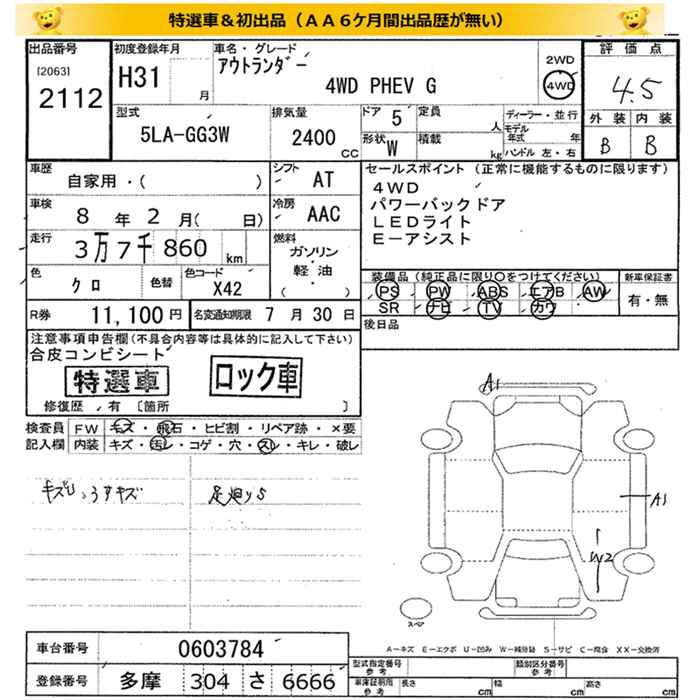 特選車＆初出品（ＡＡ６ケ月間出品歴が無い）
出品番号 初度登録年月 車名・グレード 2WD 評価点
[2063] H31 アウトランダー 4WD 4.5
2112 月 4WD PHEV G
型式 排気量 ドア 5 定員 人 ディーラー・並行 外装 内装
5LA-GG3W 2400 CC 形状 W 積載 kg モデル年式 年 B B
ハンドル 左・右
車歴 自家用・( ) シフト AT セールスポイント（正常に機能するものに限ります）
車検 8 年 2 月( 日) 冷房 AAC ４ＷＤ
パワーバックドア
ＬＥＤライト
Ｅーアシスト
走行 3万7千860 km 燃料 ガソリン
軽油
( )
色 クロ 色替 色コード X42 装備品（純正品に限り〇をつけてください） 新車保証書
PS PW ABS エアB AW 有・無
SR ナビ TV カワ
R券 11,100円 名変通知期限 7 月 30 日 後日品
注意事項申告欄（不具合内容等は具体的に記入して下さい）
合皮コンビシート
特選車 ロック車
修復歴 有 [箇所 ]
検査員 FW キズ・飛石・ヒビ割・リペア跡・×要
記入欄 内装 キズ・汚レ・コゲ・穴・スレ・キレ・破レ
A1
A1
W2
スペア
A－キズ E－エクボ U－凹み W－補修跡 S－サビ C－腐食 XX－交換済
車台番号 0603784 型式指定番号 参考 類別区分番号 参考
登録番号 多摩 304 さ 6666 車庫証明用 参考 長さ cm 幅 cm 高さ cm